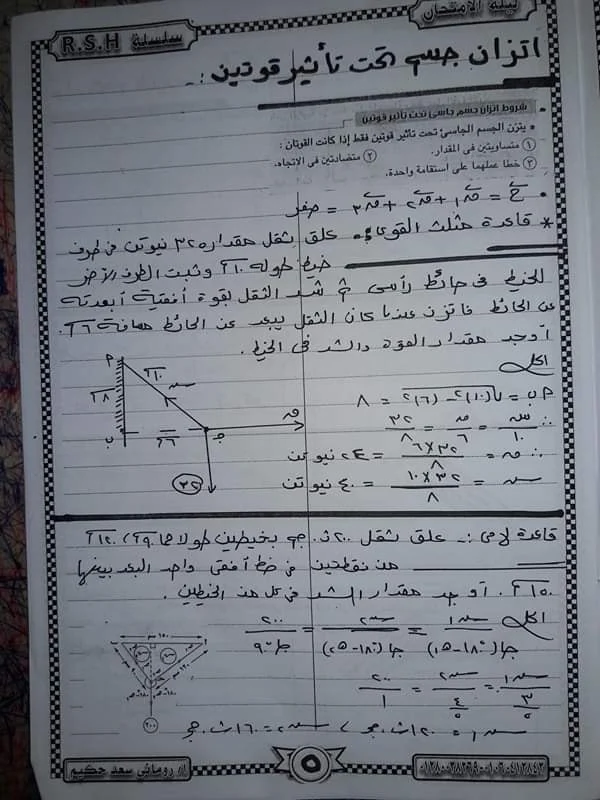 ليلة الامتحان
سلسلة R.S.H
اتزان جسم تحت تأثير قوتين :-
شروط اتزان جسم جاسئ تحت تأثير قوتين
يتزن الجسم الجاسئ تحت تأثير قوتين فقط إذا كانت القوتان :
① متساويتين فى المقدار. ② متضادتين فى الاتجاه.
③ خطا عملهما على استقامة واحدة.
ح = ق١ + ق٢ + ق٣ = صفر
* قاعدة مثلث القوى :- علق ثقل مقداره ٣٢ نيوتن فى طرف
خيط طوله ١٠ وثبت الطرف الآخر
للخيط فى حائط رأسى ثم شد الثقل بقوة أفقية أبعدته
عن الحائط فاتزن عندما كان الثقل يبعد عن الحائط مسافة ٦
أوجد مقدار القوة والشد فى الخيط .
الحل
أب = √(١٠)٢ - (٦)٢ = ٨
∴ س/١٠ = ق/٦ = ٣٢/٨
∴ ق = ٣٢×٦/٨ = ٢٤ نيوتن
س = ٣٢×١٠/٨ = ٤٠ نيوتن
قاعدة لامى :- علق ثقل ٢٠٠ ث.جم بخيطين طولاهما ٩٠ ، ١٢٠
من نقطتين فى خط أفقى واحد البعد بينهما
١٥٠ . أوجد مقدار الشد فى كل من الخيطين .
الحل
س١/جا(١٨٠-١هـ) = س٢/جا(١٨٠-٢هـ) = ٢٠٠/جا٩٠
س١/٣/٥ = س٢/٤/٥ = ٢٠٠/١
س١ = ١٢٠ ث.جم ، س٢ = ١٦٠ ث.جم
٥
أ/ رومانى سعد حكيم